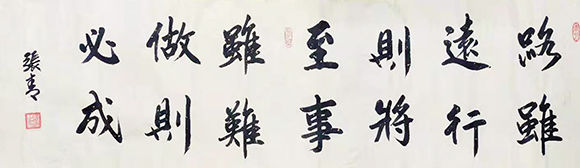 路雖
遠行
則將
至事
雖難
做則
必成
張青